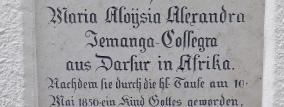 Maria Aloÿsia Alexandra
Jemanga-Cossegra
aus Darfur in Afrika.
Nachdem sie durch die hl. Taufe am 10.
Mai 1856 ein Kind Gottes geworden,